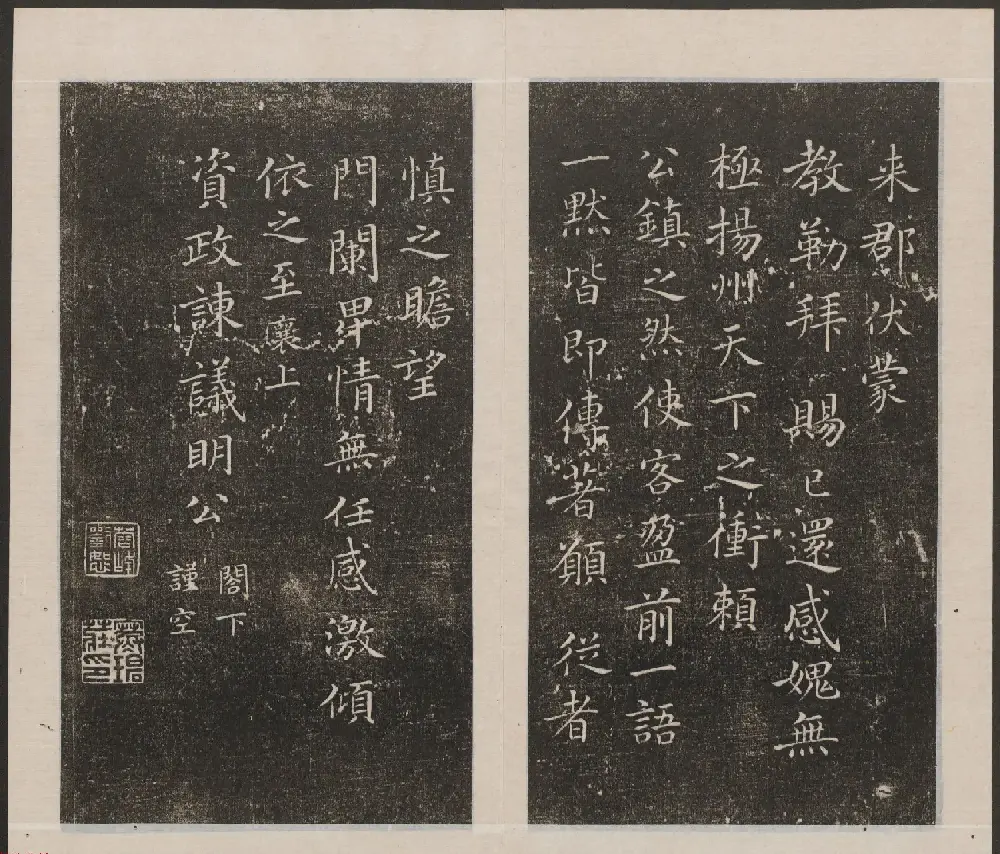 来郡伏蒙
教勒拜賜已還感媿無
極揚州天下之衝賴
公鎮之然使客盈前一語
一默皆即傳著願從者
慎之瞻望
門闌畢情無任感激傾
依之至襄上
資政諫議明公
閣下
謹空